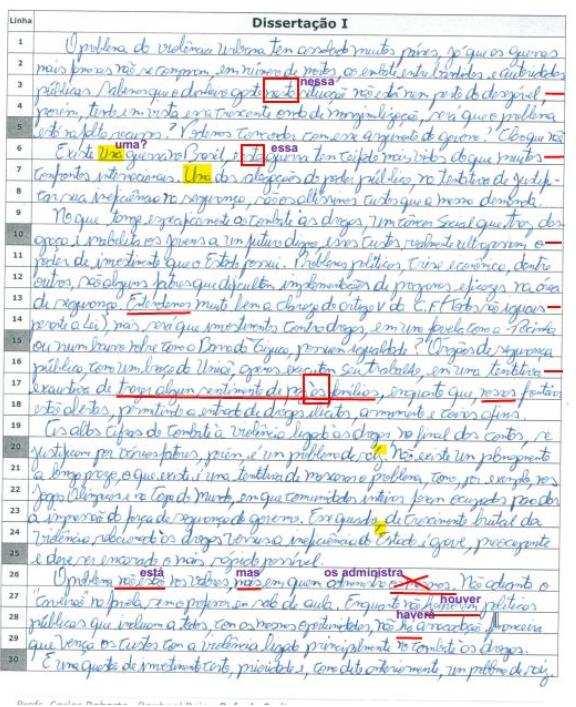 Linha Dissertação I
1 O problema da violência urbana tem assolado muitos países, já que as guerras
2 mais famosas não se comparam, em número de mortos, ao embate entre bandidos e autoridades
nessa
3 públicas. Sabemos que o dinheiro gasto nesta situação não está nem perto do desejável,
4 porém, tendo em vista esta crescente onda de marginalização, será que o problema
5 está na falta recursos? Podemos concordar com esse argumento do governo? Claro que não
uma? essa
6 Existe Uma guerra no Brasil, e esta guerra tem ceifado mais vidas do que muitos
7 confrontos internacionais. Uma das alegações do poder público, na tentativa de justifi-
8 car sua ineficiência na segurança, são os altíssimos custos que a mesma demanda.
9 No que tange especificamente ao combate às drogas, um câncer social que traz des-
10 graça e mobiliza os jovens a um futuro digno, esses custos realmente ultrapassam o
11 poder de investimento que o Estado possui. Problemas políticos, crise econômica, dentre
12 outros, são alguns fatores que dificultam implementações de programas eficazes na área
13 de segurança. Entendemos muito bem a clareza do artigo V da C.F (Todos são iguais
14 perante a Lei), mas, será que investimentos contra drogas, em uma favela como a Rocinha
15 ou num bairro nobre como a Barra da Tijuca, possuem igualdade? Órgãos de segurança
16 pública, com um braço da União, apenas executam seu trabalho, em uma tentativa
17 exaustiva de trazer algum sentimento de paz às famílias, enquanto que, nossas fronteiras
18 estão abertas, permitindo a entrada de drogas ilícitas, armamento e coisas afins
19 As altas cifras do combate à violência ligada às drogas no final das contas, se
20 justificam por vários fatores, porém, é um problema de raiz. Não existe um planejamento
21 a longo prazo, o que existe é uma tentativa de mascarar o problema, como, por exemplo, nos
22 Jogos Olímpicos e na Copa do Mundo, em que comunidades inteiras foram ocupadas para dar
23 a impressão da força de segurança do governo. Esse quadro, de crescimento brutal da
24 violência relacionada às drogas versus a ineficiência do Estado é grave, preocupante
25 e deve ser encarado o mais rápido possível.
está mas os administra
26 O problema não está nos valores, mas em quem administra os mesmos. Não adianta o
houver
27 no farda, nem o professor em sala de aula. Enquanto não políticas
haverá
28 públicas que incluam a todos, com as mesmas oportunidades, não há arrecadação financeira
29 que vença os custos com a violência ligada principalmente no combate às drogas.
30 É uma questão de investimento certo, prioridades e, como dito anteriormente, um problema de raiz.